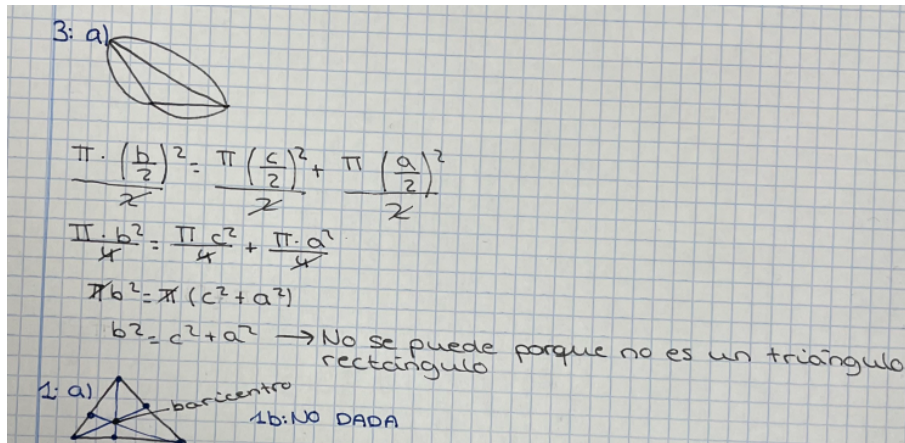 3: a)
π · (b/2)² / 2 = π (c/2)² / 2 + π (a/2)² / 2
π · b² / 4 = π c² / 4 + π · a² / 4
πb² = π (c² + a²)
b² = c² + a² → No se puede porque no es un triángulo
rectángulo
1: a)
baricentro
1b: NO DADA